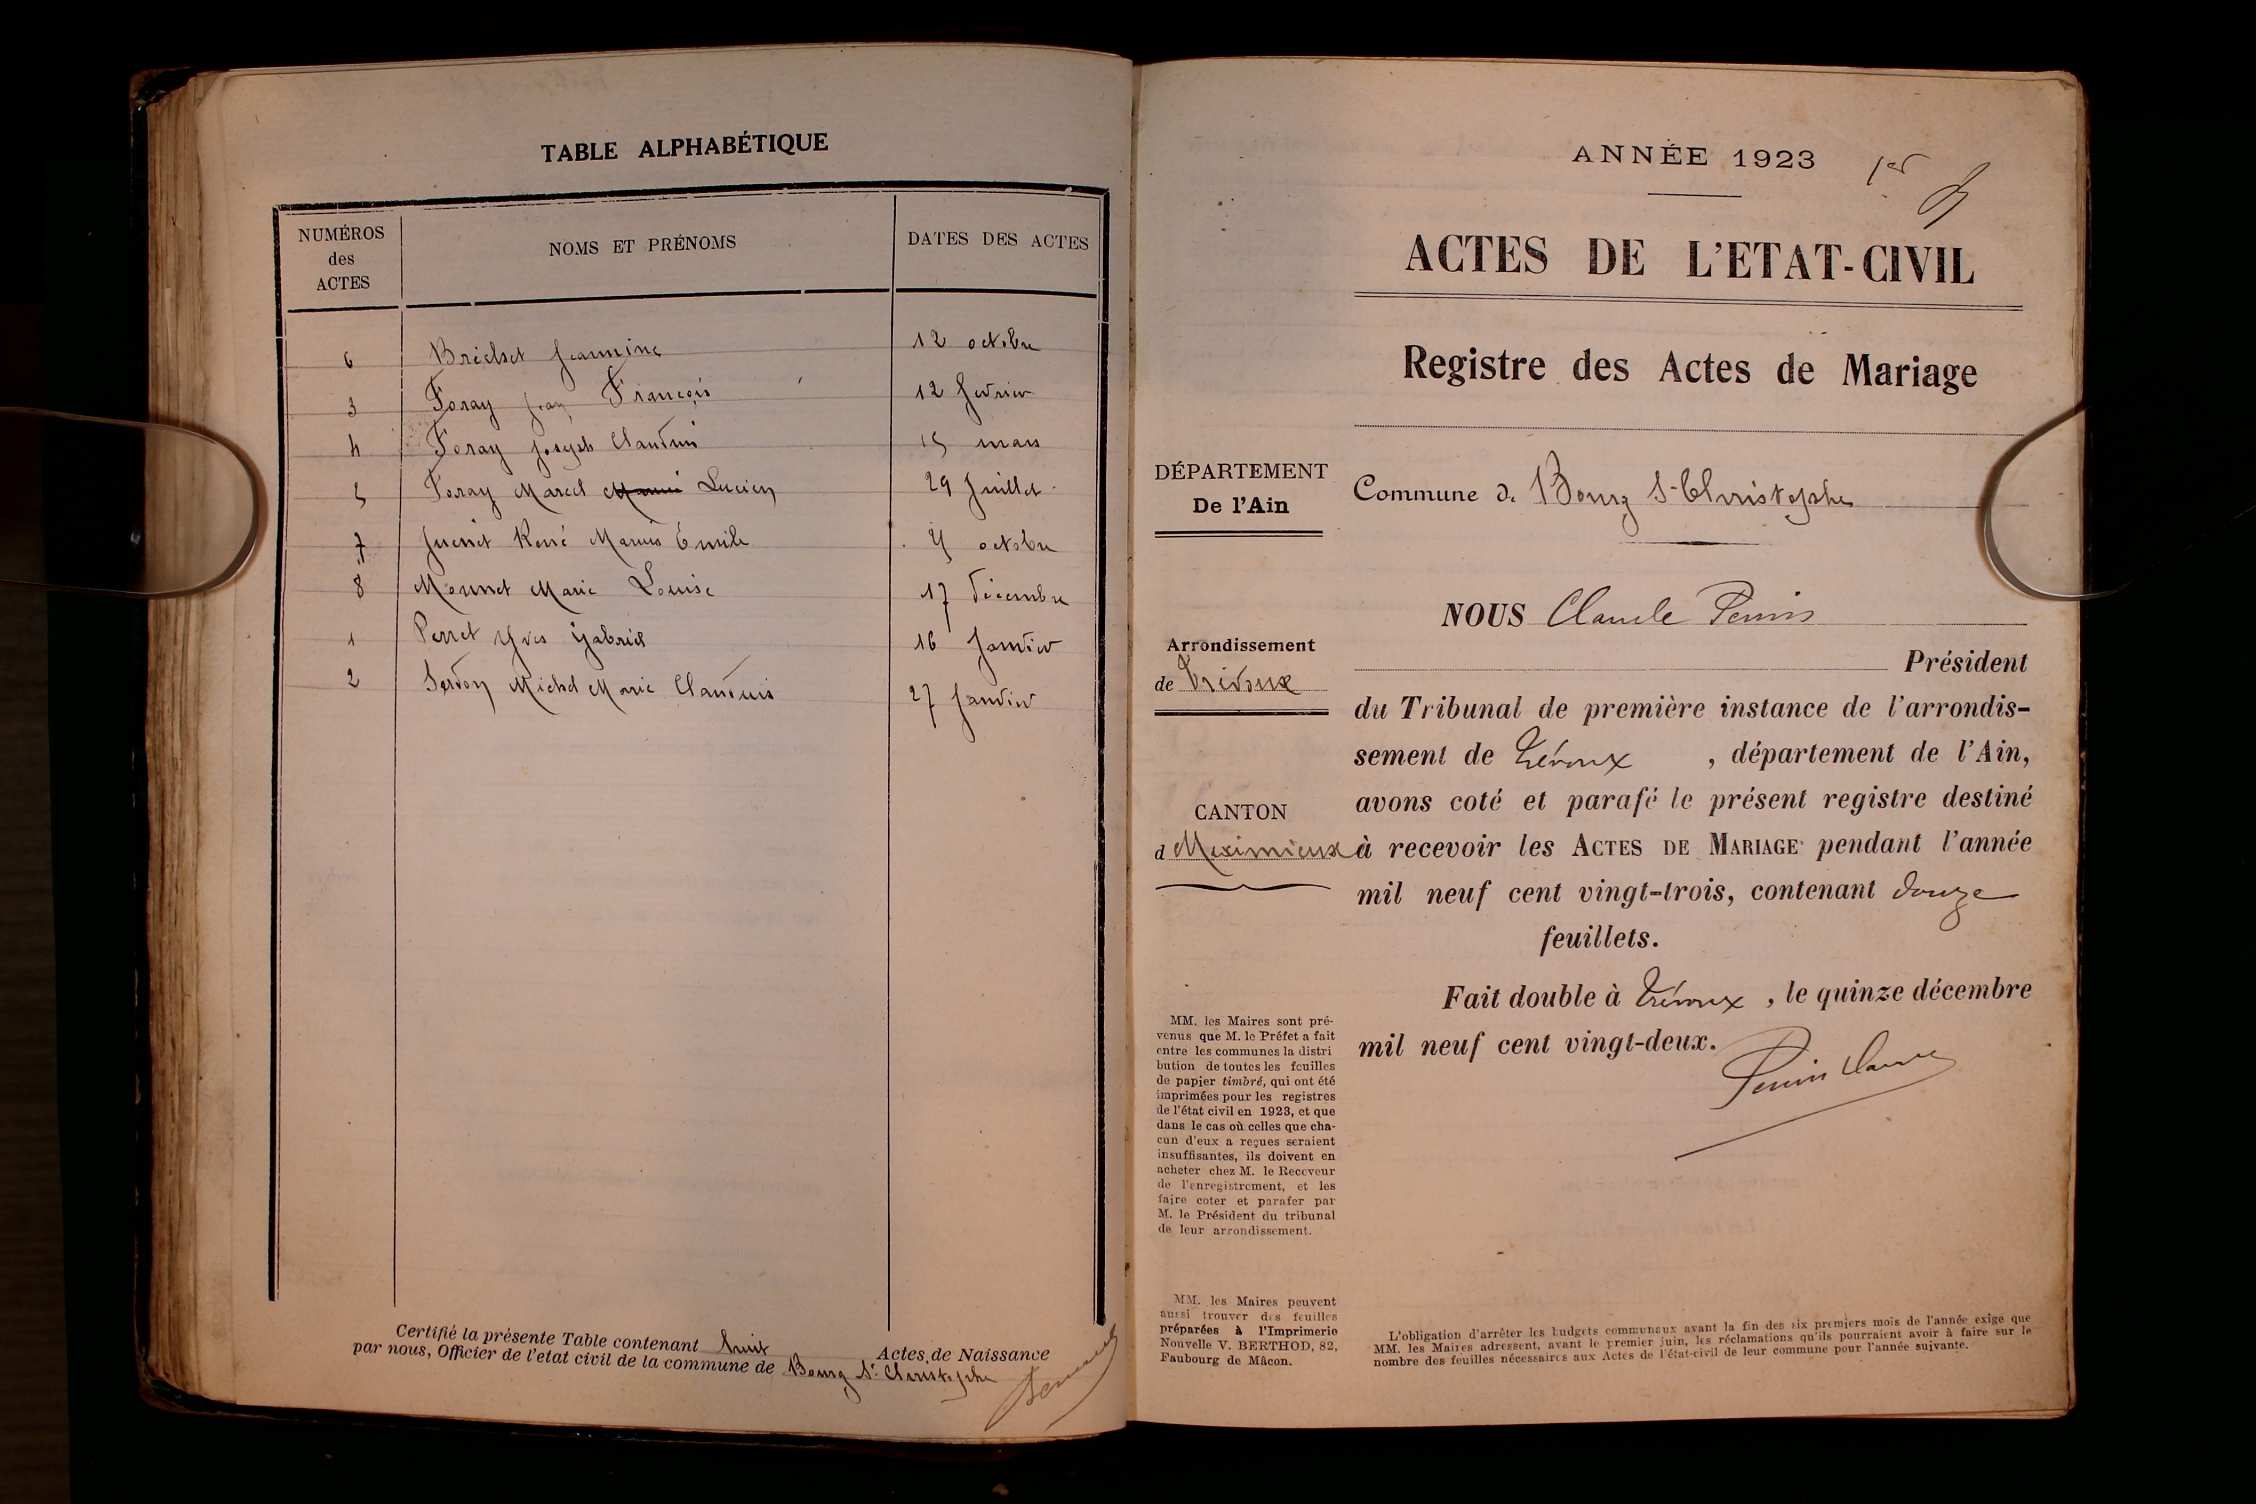 TABLE ALPHABÉTIQUE
NUMÉROS des ACTES NOMS ET PRÉNOMS DATES DES ACTES
6 Bréchet Jeannine 12 octobre
3 Foray Jean François 12 février
4 Foray Joseph Claudius 15 mars
5 Foray Marcel Lucien 29 Juillet
7 René Marius Émile octobre
8 Monnet Marie Louise 17 décembre
1 Perret Yves Gabriel 16 Janvier
2 Serdon Michel Marie Claudius 27 Janvier
Certifié la présente Table contenant huit Actes de Naissance
par nous, Officier de l'etat civil de la commune de Bourg St Christophe
ANNÉE 1923
1er
ACTES DE L'ETAT-CIVIL
Registre des Actes de Mariage
DÉPARTEMENT
De l'Ain
Commune de Bourg St Christophe
Arrondissement
de Trévoux
CANTON
d Meximieux
NOUS Claude Perrin
Président
du Tribunal de première instance de l'arrondis-
sement de Trévoux , département de l'Ain,
avons coté et parafé le présent registre destiné
à recevoir les ACTES DE MARIAGE pendant l'année
mil neuf cent vingt-trois, contenant douze
feuillets.
Fait double à Trévoux , le quinze décembre
mil neuf cent vingt-deux.
Perrin Claude
MM. les Maires sont pré-
venus que M. le Préfet a fait
entre les communes la distri
bution de toutes les feuilles
de papier timbré, qui ont été
imprimées pour les registres
de l'état civil en 1923, et que
dans le cas où celles que cha-
cun d'eux a reçues seraient
insuffisantes, ils doivent en
acheter chez M. le Receveur
de l'enregistrement, et les
faire coter et parafer par
M. le Président du tribunal
de leur arrondissement.
MM. les Maires peuvent
aussi trouver des feuilles
préparées à l'Imprimerie
Nouvelle V. BERTHOD, 82,
Faubourg de Mâcon.
L'obligation d'arrêter les budgets communaux avant la fin des six premiers mois de l'année exige que
MM. les Maires adressent, avant le premier juin, les réclamations qu'ils pourraient avoir à faire sur le
nombre des feuilles nécessaires aux Actes de l'état-civil de leur commune pour l'année suivante.